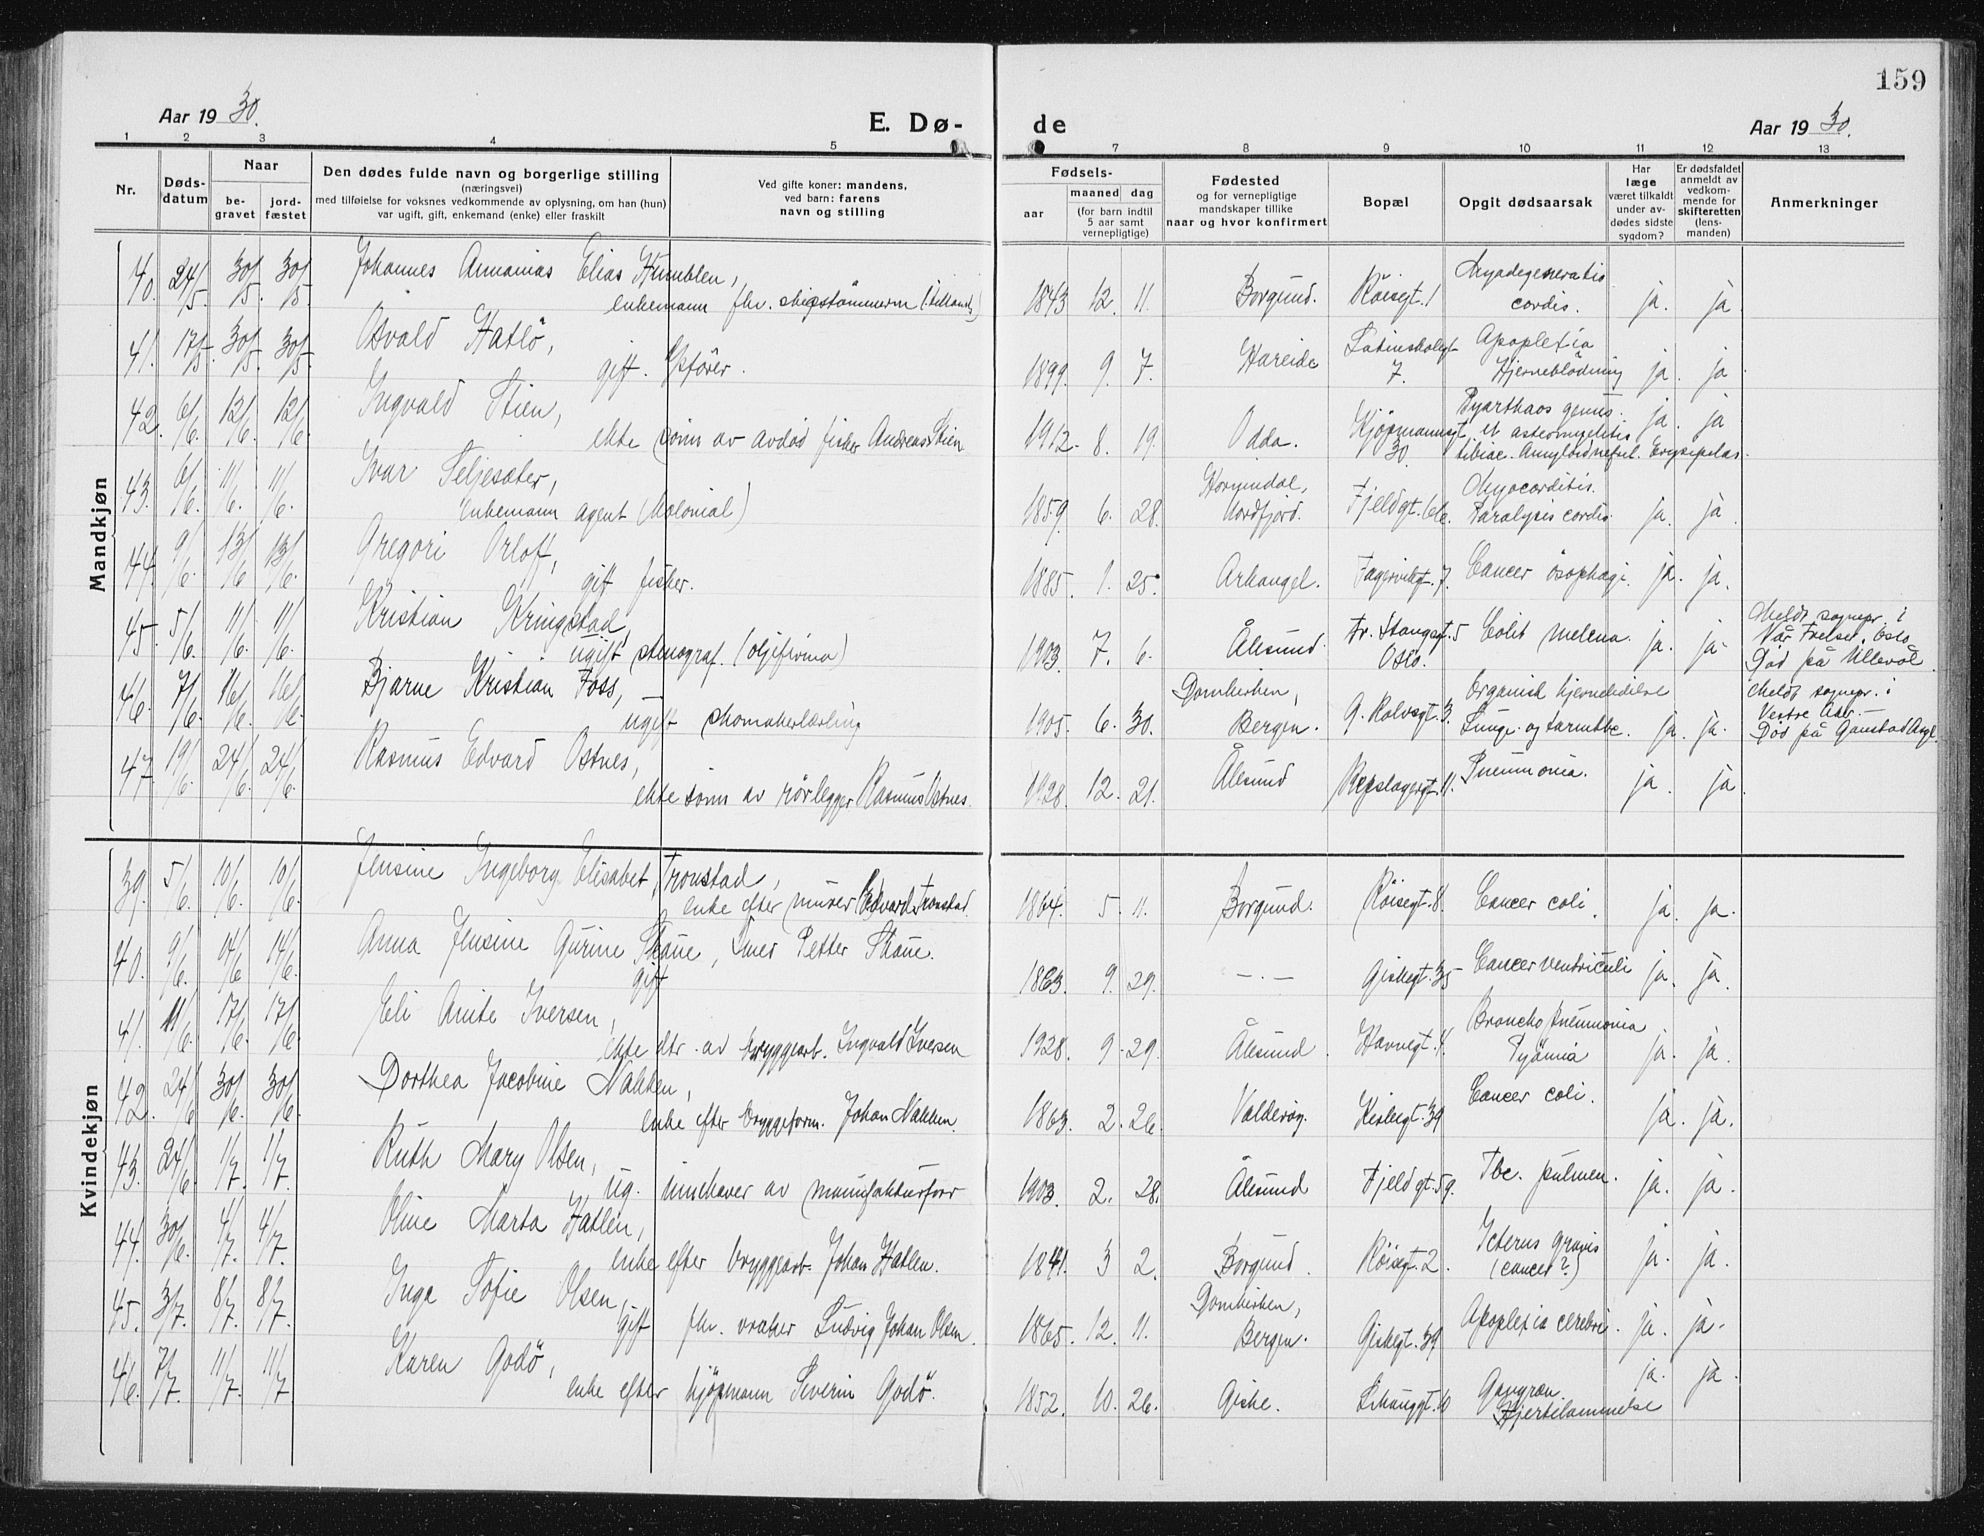 159
Aar 1930.
E. Dø-
de
Aar 1930.
1 2 3 4 5 7 8 9 10 11 12 13
Nr.
Døds-
datum
Naar
be-
gravet
jord-
fæstet
Den dødes fulde navn og borgerlige stilling
(næringsvei)
med tilføielse for voksnes vedkommende av oplysning, om han (hun)
var ugift, gift, enkemand (enke) eller fraskilt
Ved gifte koner: mandens,
ved barn: farens
navn og stilling
Fødsels-
aar
maaned dag
(for barn indtil
5 aar samt
vernepligtige)
Fødested
og for vernepligtige
mandskaper tillike
naar og hvor konfirmert
Bopæl
Opgit dødsaarsak
Har
læge
været tilkaldt
under av-
dødes sidste
sygdom?
Er dødsfaldet
anmeldt av
vedkom-
mende for
skifteretten
(lens-
manden)
Anmerkninger
Mandkjøn
40. 24/5 30/5. 30/5. Johannes Annanias Elias Humblen,
enkemann fhv. skipstømmerm
1843 12. 11. Borgund. Röisgt. 1 Myodegeneratio
cordis. ja. ja
41. 17/5. 30/5. 30/5. Osvald Hatlö,
gift.
1899. 9. 7. Hareide Latinskolegt
7. Apoplexia
Hjerneblödning ja. ja
42. 6/6. 12/6. 12/6. Ingvald Stien,
ekte sönn av avdöd fisker Andreas Stien
1912. 8. 19. Odda. Kjöpmannsgt
30. Pyarthros genus. et osteomyelitis
tibiae. Amyloidnefrit. Erysipelas. ja. ja
43. 6/6. 11/6. 11/6. Ivar Seljesæter,
Enkemann agent (kolonial)
1859. 6. 28. Hornindal,
Nordfjord. Fjeldgt. 66. Myocarditis.
Paralysis cordis. ja. ja
44. 9/6. 13/6 13/6. Gregori Orloff,
gift fisker.
1885. 1. 25. Arkangel. Fagervikgt. 7. Cancer ösophagi. ja. ja.
45. 5/6. 11/6. 11/6. Kristian Kringstad,
ugift stenograf. (oljefirma)
1903. 7. 6. Ålesund Fr. Stangsgt. 5
Oslo. Colit melena. ja. ja
Meldt sognepr. i
Vår Frelser, Oslo.
Död på Ullevål.
46. 7/6. 16/6. 16/6. Bjarne Kristian Foss,
ugift skomakerlærling
1905. 6. 30. Domkirken,
Bergen. G. Rolvsgt. 3. Organisk hjernelidelse
Lunge- og tarmtbc. ja. ja.
Meldt sognepr. i
Vestre Aker.
Död på Gaustad Asyl.
47. 19/6. 24/6. 24/6. Rasmus Edvard Ostnes,
ekte sönn av rörlegger Rasmus Ostnes.
1928. 12. 21. Ålesund Repslagergt. 11. Pneumonia. ja. ja
Kvindekjøn
39. 5/6. 10/6. 10/6. Jensine Ingeborg Elisabet Tronstad,
enke efter murer Edvard Tronstad.
1864. 5. 11. Borgund. Röisegt. 8. Cancer coli. ja. ja.
40. 9/6. 14/6 14/6. Anna Jensine Gurine Skaue, Petter Skaue.
gift
1863. 9. 29. —.— Giskegt. 35 Cancer ventriculi ja. ja.
41. 11/6. 17/6. 17/6. Eli Anite Iversen,
ekte dtr. av bryggearb. Ingvald Iversen
1928. 9. 29. Ålesund. Havnegt. 4. Broncho/pneumonia
Pyämia ja. ja.
42. 24/6 30/6. 30/6. Dorthea Jacobine Nakken,
enke efter bryggeform. Johan Nakken.
1863. 2. 26. Valderöy. Kirkegt. 39 Cancer coli. ja. ja.
43. 24/6. 1/7. 1/7. Ruth Mary Olsen,
ug. innehaver av manufakturforr
1903. 2. 28. Ålesund Fjeldgt. 59. Tbc. pulmon. ja. ja.
44. 30/6. 4/7. 4/7. Oline Marta Hatlen,
enke efter bryggearb. Johan Hatlen.
1841. 3 2. Borgund. Röisegt. 2. Icterus gravis
(cancer?) ja. ja.
45. 3/7. 8/7. 8/7. Inga Sofie Olsen,
gift fhv. vraker Ludvig Johan Olsen.
1865. 12. 11. Domkirken,
Bergen. Giskegt. 39 Apoplexia cerebri. ja. ja.
46. 7/7. 11/7. 11/7 Karen Godö,
enke efter kjöpmann Severin Godö.
1852. 10. 26. Giske. Gangræn.
Hjertelammelse ja. ja.